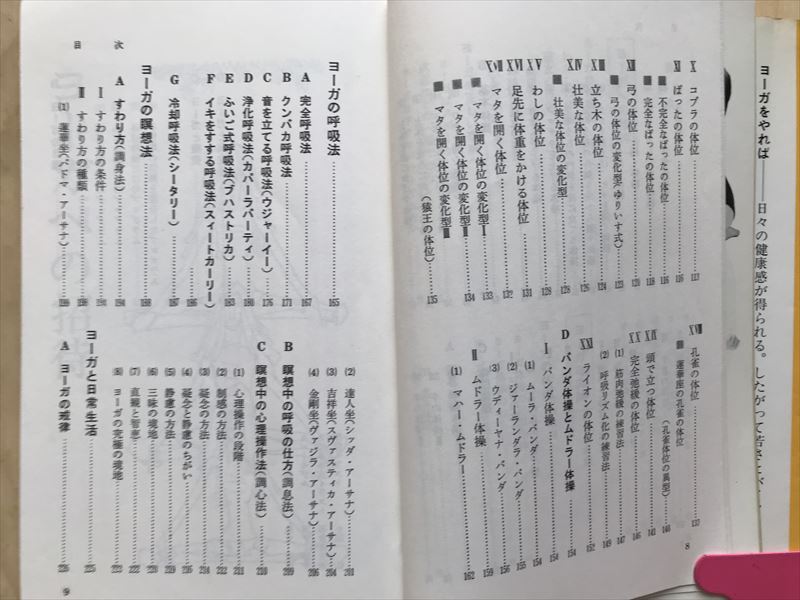 ヨーガをやれば――日々の健康感が得られる。したがって若さと
X コブラの体位……117
XI ばったの体位……116
■ 不完全なばったの体位……118
■ 完全なばったの体位……118
XII 弓の体位……120
■ 弓の体位の変化型(ゆりいす式)……123
XIII 立ち木の体位……124
XIV 壮美な体位……126
■ 壮美な体位の変化型……128
XV わしの体位……128
XVI 足先に体重をかける体位……131
XVII マタを開く体位……132
■ マタを開く体位の変化型I……133
■ マタを開く体位の変化型II……134
■ マタを開く体位の変化型III
(猿王の体位)……135
XVIII 孔雀の体位……137
■ 蓮華座の孔雀の体位
(孔雀体位の異型)……140
XIX 頭で立つ体位……141
XX 完全弛緩の体位……146
(1) 筋肉弛緩の練習法……147
(2) 呼吸リズム化の練習法……149
XXI ライオンの体位……152
D バンダ体操とムドラー体操……154
I バンダ体操……154
(1) ムーラ・バンダ……154
(2) ジァーランダラ・バンダ……155
(3) ウディーヤナ・バンダ……156
II ムドラー体操……159
(1) マハー・ムドラー……162
8
ヨーガの呼吸法……165
A 完全呼吸法……167
B クンバカ呼吸法……171
C 音を立てる呼吸法(ウジャーイー)……176
D 浄化呼吸法(カパーラバーティ)……180
E ふいご式呼吸法(ブハストリカ)……183
F イキをすする呼吸法(スィートカーリー)
……186
G 冷却呼吸法(シータリー)……187
ヨーガの瞑想法……188
目 次
A すわり方(調身法)……194
I すわり方の条件……194
II すわり方の種類……198
(1) 蓮華坐(パドマ・アーサナ)……199
(2) 達人坐(シッダ・アーサナ)……201
(3) 吉祥坐(スヴァスティカ・アーサナ)……204
(4) 金剛坐(ヴァジラ・アーサナ)……206
B 瞑想中の呼吸の仕方(調息法)……209
C 瞑想中の心理操作法(調心法)……210
(1) 心理操作の段階……211
(2) 制感の方法……212
(3) 凝念の方法……214
(4) 凝念と静慮のちがい……215
(5) 静慮の方法……219
(6) 三昧の境地……220
(7) 直観と智恵……222
(8) ヨーガの究極の境地……223
ヨーガと日常生活……225
A ヨーガの戒律……226
9